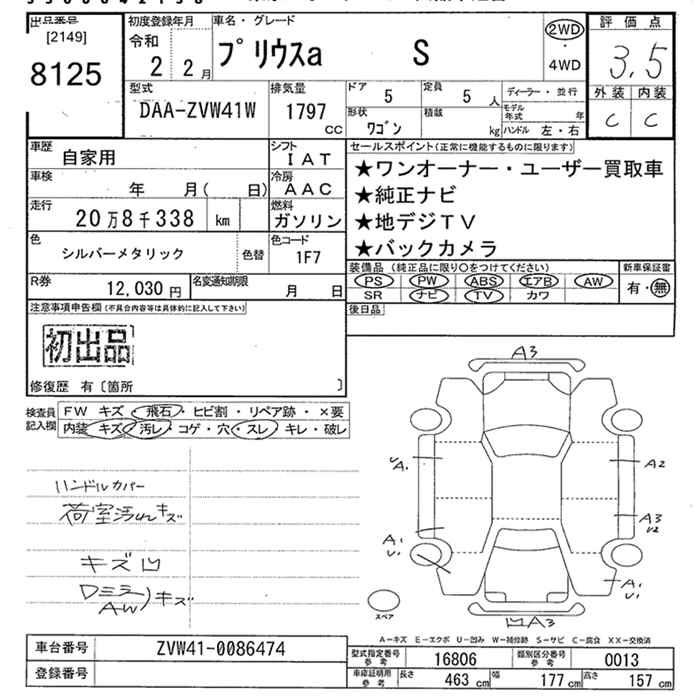 出品番号
[2149]
8125
初度登録年月
令和
2 2月
車名・グレード
プリウスa S
2WD
・
4WD
評価点
3.5
外装 内装
C C
型式
DAA-ZVW41W
排気量
1797
CC
ドア
5
定員
5 人
形状
ワゴン
積載
kg
ディーラー・並行
モデル年式 年
ハンドル 左・右
車歴
自家用
シフト
IAT
車検
年 月( 日)
冷房
AAC
走行
20万8千338 km
燃料
ガソリン
色
シルバーメタリック
色替
色コード
1F7
R券
12,030 円
名変通知期限
月 日
セールスポイント(正常に機能するものに限ります)
★ワンオーナー・ユーザー買取車
★純正ナビ
★地デジTV
★バックカメラ
装備品(純正品に限り○をつけてください)
PS PW ABS エアB AW
SR ナビ TV カワ
新車保証書
有・無
後日品
注意事項申告欄(不具合内容等は具体的に記入して下さい)
初出品
修復歴 有〔箇所 〕
検査員
記入欄
FW キズ・飛石・ヒビ割・リペア跡・×要
内装 キズ・汚レ・コゲ・穴・スレ・キレ・破レ
ハンドルカバー
荷室汚れキズ
キズ凹
Dミラー
AW)キズ
A3
A1
A2
A3
U2
A1
U1
A1
U1
凹A3
スペア
A―キズ E―エクボ U―凹み W―補修跡 S―サビ C―腐食 XX―交換済
車台番号
ZVW41-0086474
登録番号
型式指定番号
参考
16806
類別区分番号
参考
0013
車庫証明用
参考
長さ
463 cm
幅
177 cm
高さ
157 cm